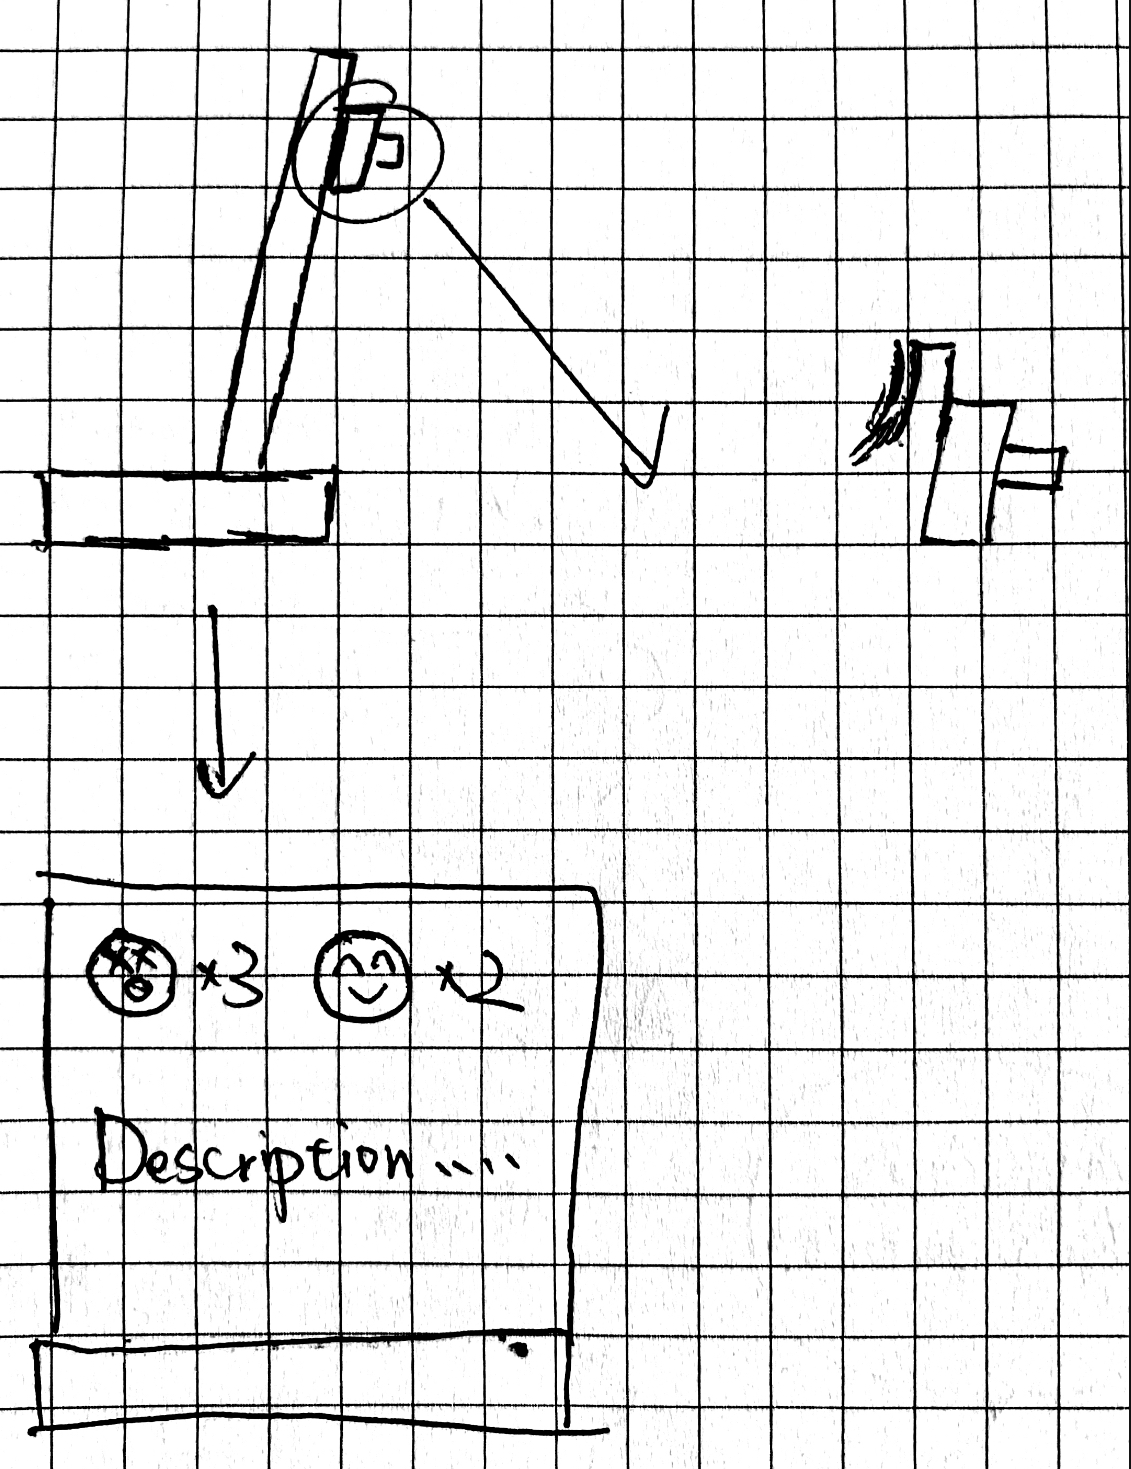 ×3 ×2
Description ....